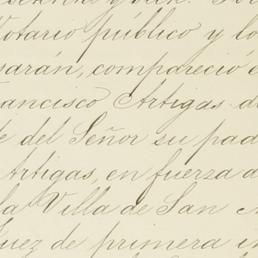 Notario público y lo
sarán, compareció
Francisco Artigas
del Señor su pad
Artigas, en fuerza
la Villa de San
Juez de primera